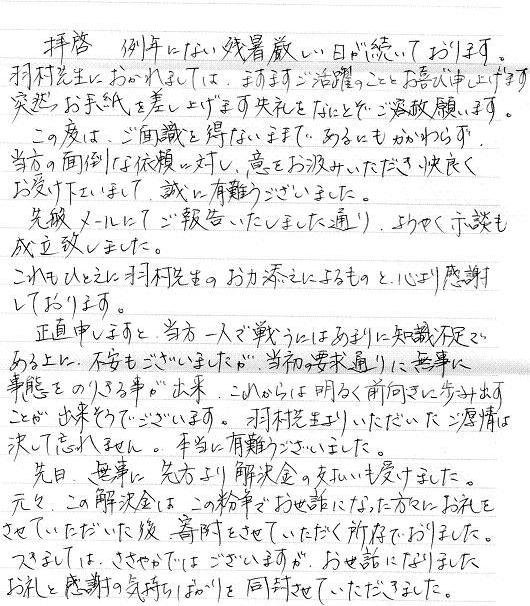 拝啓　例年にない残暑厳しい日が続いております。
羽村先生におかれましては、ますますご活躍のこととお喜び申し上げます
突然、お手紙を差し上げます失礼をなにとぞご容赦願います。
この度は、ご面識を得ないままであるにもかかわらず、
当方の面倒な依頼に対し、意をお汲みいただき快良く
お受け下さいまして、誠に有難うございました。
先般メールにてご報告いたしました通り、ようやく示談も
成立致しました。
これもひとえに羽村先生のお力添えによるものと、心より感謝
しております。
正直申しますと、当方一人で戦うにはあまりに知識不足で
ある上に、不安もございましたが、当初の要求通りに無事に
事態をのりきる事が出来、これからは明るく前向きに歩み出す
ことが出来そうでございます。羽村先生よりいただいたご厚情は
決して忘れません。本当に有難うございました。
先日、無事に先方より解決金の支払いも受けました。
元々、この解決金は、この紛争でお世話になった方々にお礼を
させていただいた後、寄附をさせていただく所存でおりました。
つきましては、ささやかではございますが、お世話になりました
お礼と感謝の気持ちばかりを同封させていただきました。